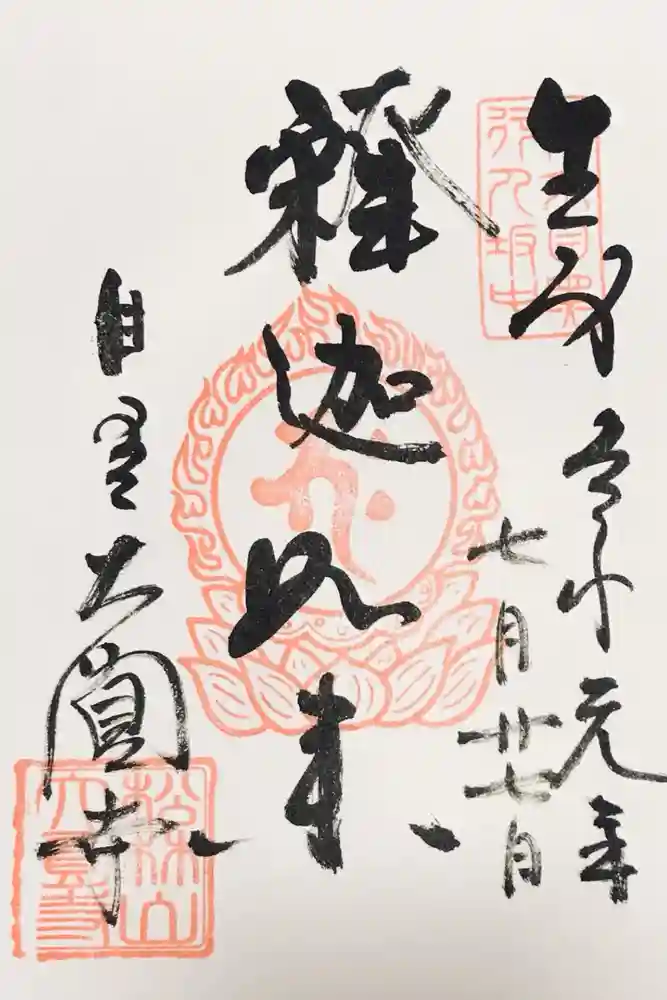 生身
行人坂中
令和元年
七月廿七日
釋迦如来
目黒大圓寺
松林山
大圓寺